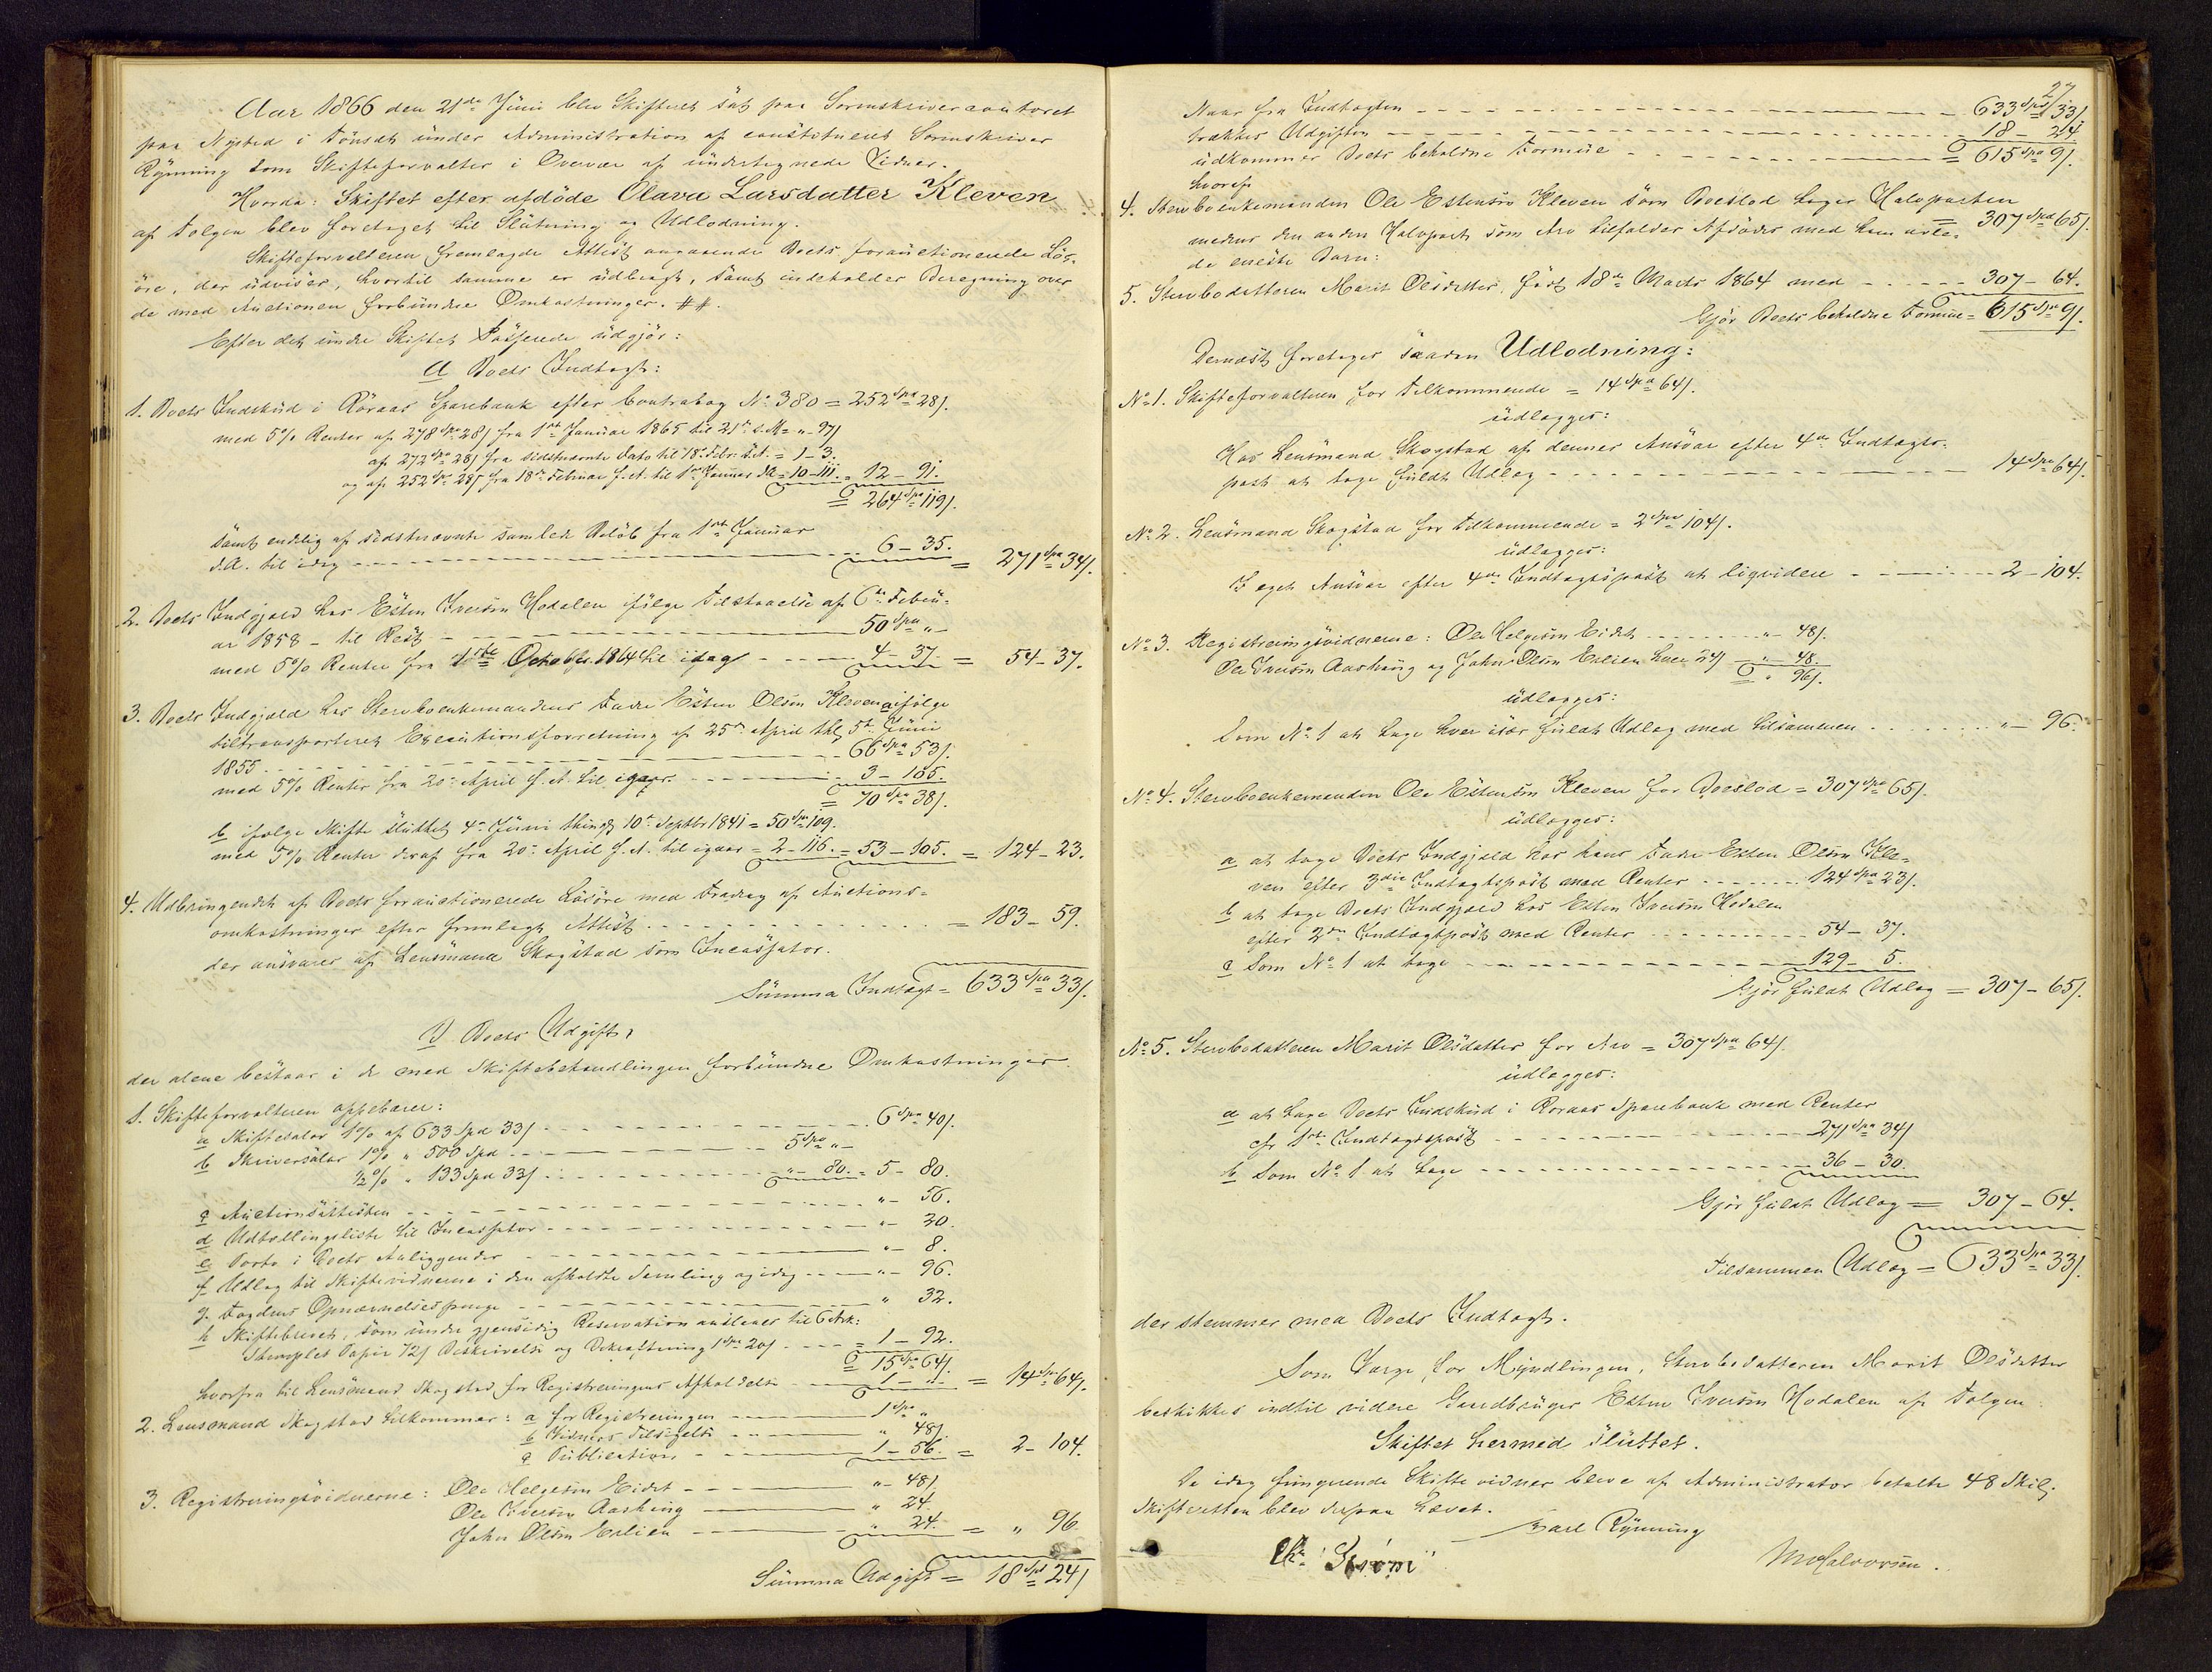 Aar 1866 den 21de Juni blev Skifteret sat paa Sorenskrivercontoret
paa Nysted i Tönset under Administration af constitueret Sorenskriver
Rynning som Skifteforvalter i Overvær af undertegnede Vidner.
Hvorda: Skiftet efter afdöde Olava Larsdatter Kleven
af Tolgen blev foretaget til Slutning og Udlodning.
Skifteforvalteren fremlagde Attest angaaende Boets forauctionerede Lös-
öre, der udviser, hvortil samme er udbragt, samt indeholder Beregning over
de med Auctionen forbundne Omkostninger. ##.
Efter det under Skiftet Passerede udgjör:
A Boets Indtægt:
1. Boets Indskud i Röraas Sparebank efter Contrabog No 380 = 252 Spd 28 ſ.
med 5% Renter af 278 Spd 28 ſ fra 1ste Januar 1865 til 21de s.M = " - 97 ſ
af 272 Spd 28 ſ fra sidstnævnte Dato til 18de Febr. s.A. = 1 - 3.
og af 252 Spd 28 ſ fra 18de Februar f.A. til 1ste Januar d.A = 10 - 111. = 12 - 91.
= 264 Spd 119 ſ.
samt endelig af sidstnævnte samlede Belöb fra 1ste Januar
d.A. til idag - - - 6 - 35. = 271 Spd 34 ſ.
2. Boets Indgjæld hos Esten Iversen Hodalen ifölge Tilstaaelse af 6te Febru-
ar 1858 - til Rest - - - 50 Spd " -
med 5% Renter fra 1ste October 1864 til idag - - - 4 - 37. = 54 - 37.
3. Boets Indgjæld hos Sterboenkemandens Fader Esten Olsen Kleven a ifölge
tiltransporteret Executionsforretning af 25de April thl. 5te Juni
1855 - - - 66 Spd 53 ſ.
med 5% Renter fra 20de April f.A. til igaar - - - 3 - 105.
= 70 Spd 38 ſ.
b ifölge Skifte sluttet 4de Juni thingl. 10de Septbr 1841 = 50 Spd 109.
med 5% Renter deraf fra 20de April f.A. til igaar = 2 - 116. = 53 - 105. = 124 - 23.
4. Udbringendet af Boets forauctionerede Lösöre med Fradrag af Auctions-
omkostninger efter fremlagt Attest - - - = 183 - 59.
der ansvares af Lensmand Skogstad som Incassator.
Summa Indtægt = 633 Spd 33 ſ.
B Boets Udgift,
der alene bestaar i de med Skiftebehandlingen forbundne Omkostninger.
1. Skifteforvalteren oppebærer:
a Skiftesalær 1% af 633 Spd 33 ſ - - - 6 Spd 40 ſ.
b Skriversalær 1% " 500 Spd - - - 5 Spd " -
1/2 % " 133 Spd 33 ſ - - - " - 80. = 5 - 80.
c Auctionsattesten - - - " - 56.
d Udtællingsliste til Incassator - - - " - 20.
e Porto i Boets Anliggender - - - " - 8.
f Udlæg til Skiftevidnerne i den afholdte Samling og idag - - - " - 96.
g. Fogdens Opnævnelsespenge - - - " 32.
h Skiftebrevet, som under gjensidig Reservation ansees til 6 Ark:
Stemplet Papir 72 ſ Beskrivelse og Bekræftning 1 Spd 20 ſ - - - = 1 - 92.
= 15 Spd 64 ſ.
hvorfra til Lensmand Skogstad for Registreringens Afholdelse - - - 1 - ". = 14 Spd 64 ſ.
2. Lensmand Skogstad tilkommer: a for Registreringen - - - 1 Spd "
b Vidners Tilsigelse - - - " 48 ſ.
c Publication - - - 1 - 56. = 2 - 104.
3. Registreringsvidnerne: Ole Helgesen Eidet - - - " - 48 ſ.
Ole Iversen Aashaug - - - " 24.
John Olsen Erlien - - - " 24. = " 96.
Summa Udgift = 18 Spd 24 ſ
27
Naar fra Indtægten - - - 633 Spd 33 ſ.
trækkes Udgiften - - - 18 - 24
udkommer Boets beholdne Formue - - - = 615 Spd 9 ſ.
hvoraf
4. Sterboenkemanden Ole Estensen Kleven som Boeslod tager Halvparten = 307 Spd 65 ſ.
medens den anden Halvpart som Arv tilfalder Afdödes med ham avle-
de eneste Barn:
5. Sterbodatteren Marit Olsdatter, född 18de Marts 1864 med - - - 307 - 64.
Gjör Boets beholdne Formue = 615 Spd 9 ſ.
Dernæst foretages saadan Udlodning:
No 1. Skifteforvalteren for Tilkommende = 14 Spd 64 ſ.
udlægges:
Hos Lensmand Skogstad af dennes Ansvar efter 4de Indtægts-
post at tage fuldt Udlæg - - - 14 Spd 64 ſ.
No 2. Lensmand Skogstad for Tilkommende = 2 Spd 104 ſ.
udlægges:
I eget Ansvar efter 4de Indtægtspost at liqvidere - - - 2 - 104.
No 3. Registreringsvidnerne: Ole Helgesen Eidet - - - " - 48 ſ.
Ole Iversen Aashaug og John Olsen Erlien hver 24 ſ - " - 48.
" 96 ſ.
udlægges:
Som No 1 at tage hver især fuldt Udlæg med tilsammen - - - " - 96.
No 4. Sterboenkemanden Ole Estensen Kleven for Boeslod = 307 Spd 65 ſ.
udlægges:
a at tage Boets Indgjæld hos hans Fader Esten Olsen Kle-
ven efter 3die Indtægtspost med Renter - - - 124 Spd 23 ſ.
b at tage Boets Indgjæld hos Esten Iversen Hodalen
efter 2den Indtægtspost med Renter - - - 54 - 37.
c Som No 1 at tage - - - 129 - 5.
Gjör fuldt Udlæg = 307 - 65 ſ.
No 5. Sterbodatteren Marit Olsdatter for Arv = 307 Spd 64 ſ.
udlægges:
a at tage Boets Indskud i Röraas Sparebank med Renter
cfr 1ste Indtægtspost - - - 271 Spd 34 ſ
b Som No 1 at tage - - - 36 - 30.
Gjör fuldt Udlæg = 307 - 64.
Tilsammen Udlæg = 633 Spd 33 ſ.
der stemmer med Boets Indtægt.
Som Værge for Myndlingen, Sterbodatteren Marit Olsdatter
beskikkes indtil videre Gaardbruger Esten Iversen Hodalen af Tolgen.
Skiftet hermed sluttet.
De idag fungerende Skiftevidner bleve af Administrator betalte 48 Skil.
Skifteretten blev derpaa hævet.
Carl Rynning
MHalvorsen.